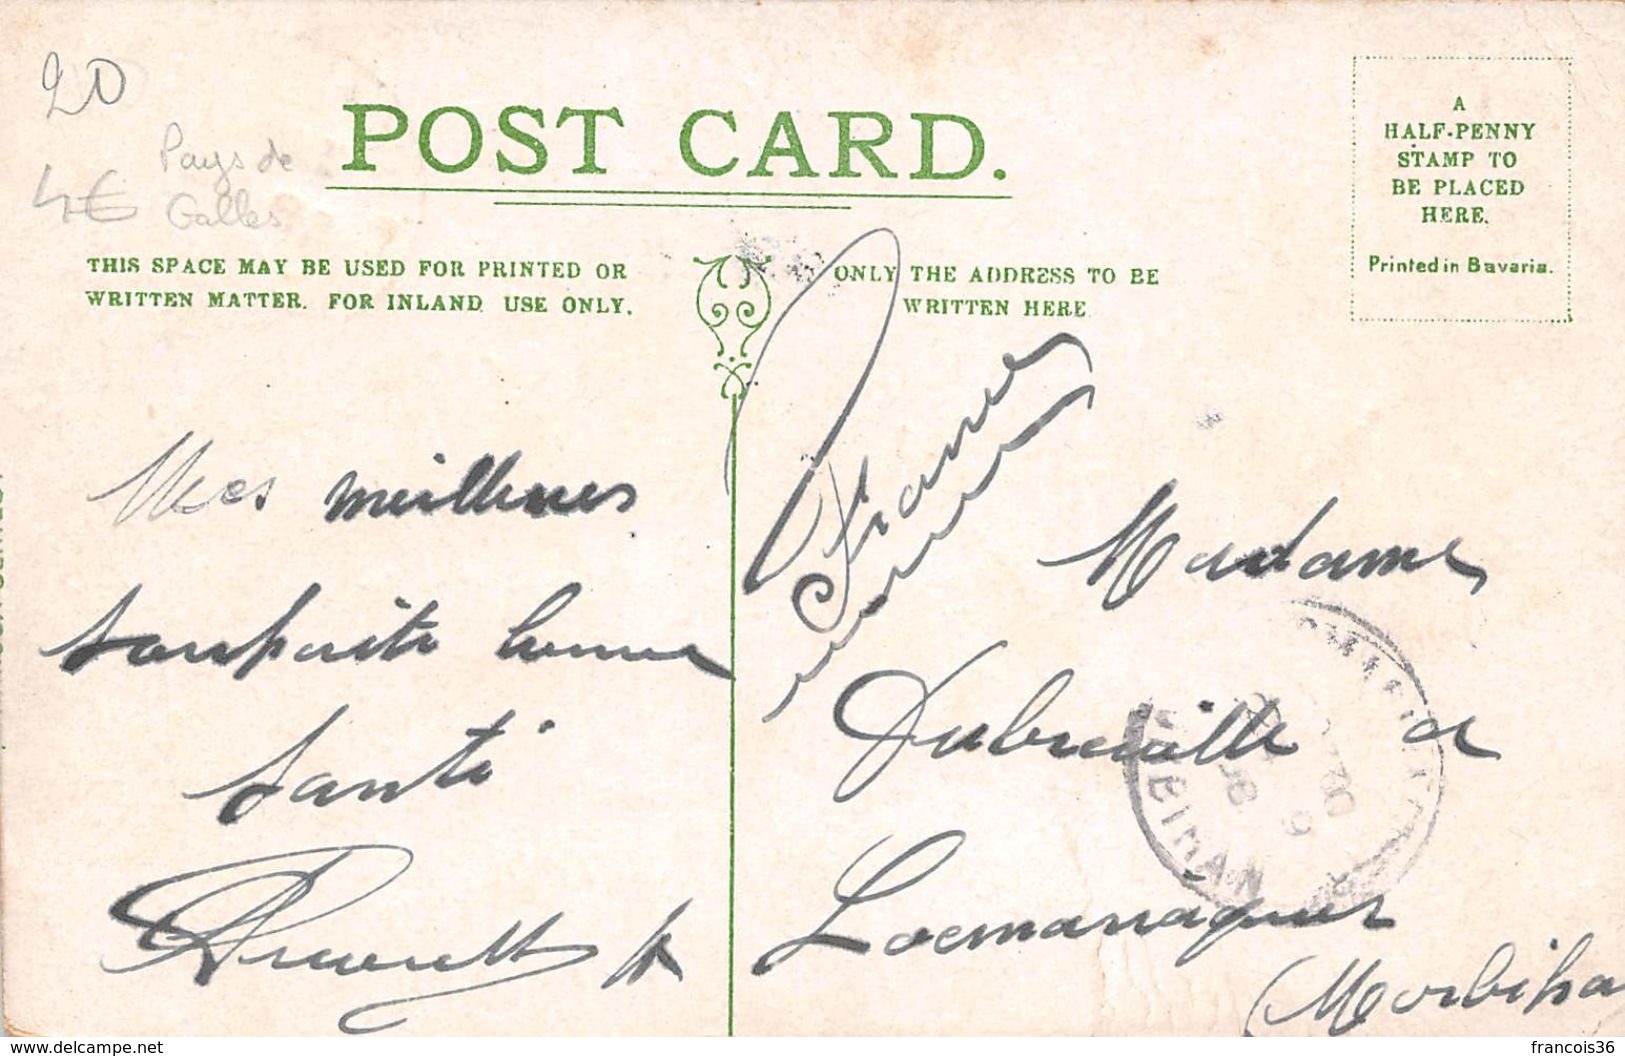 20
4€
Pays de
Galles
POST CARD.
A
HALF-PENNY
STAMP TO
BE PLACED
HERE.
Printed in Bavaria.
THIS SPACE MAY BE USED FOR PRINTED OR
WRITTEN MATTER. FOR INLAND USE ONLY.
ONLY THE ADDRESS TO BE
WRITTEN HERE
France
Mes meilleures
souhaits bonne
santé
Madame
Dubreuille a
Locmariaquer
(Morbihan
MORBIHAN
www.delcampe.net
francois36